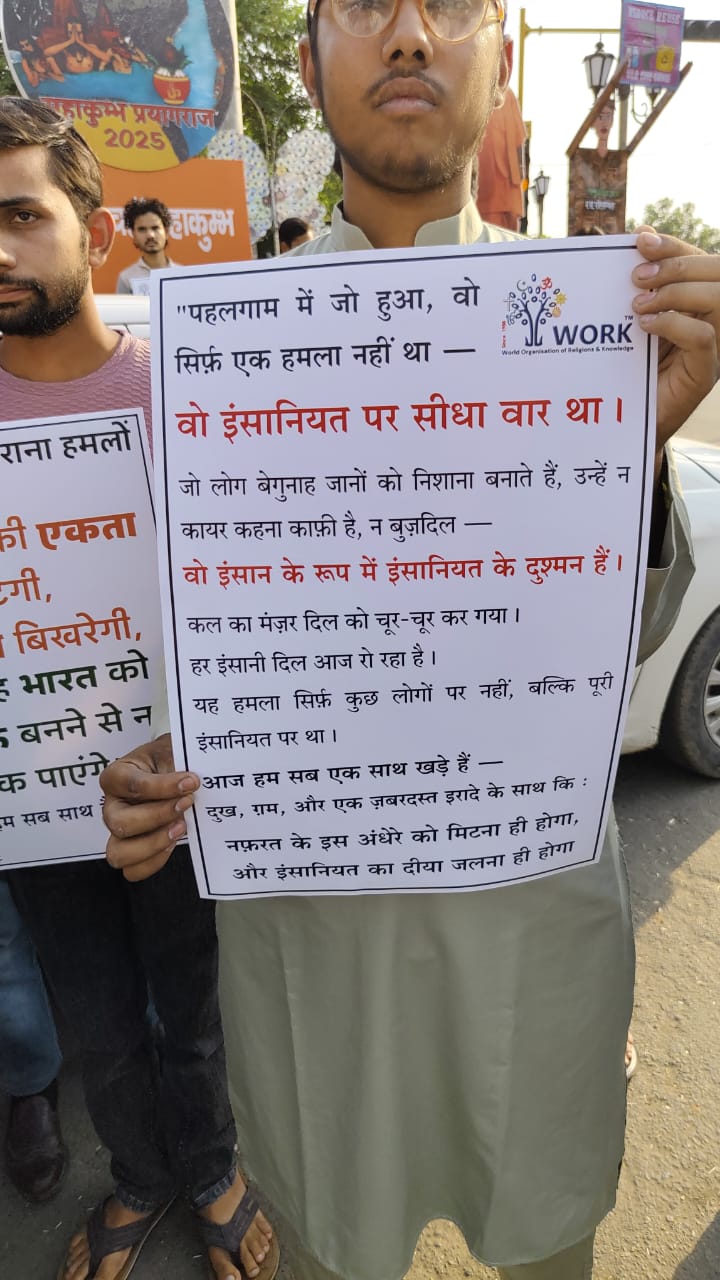 महाकुम्भ प्रयागराज
2025
हाकुम्भ
"पहलगाम में जो हुआ, वो
सिर्फ़ एक हमला नहीं था —
WORK
TM
Since : 1986
World Organisation of Religions & Knowledge
वो इंसानियत पर सीधा वार था।
जो लोग बेगुनाह जानों को निशाना बनाते हैं, उन्हें न
कायर कहना काफ़ी है, न बुज़दिल —
वो इंसान के रूप में इंसानियत के दुश्मन हैं।
कल का मंज़र दिल को चूर-चूर कर गया।
हर इंसानी दिल आज रो रहा है।
यह हमला सिर्फ़ कुछ लोगों पर नहीं, बल्कि पूरी
इंसानियत पर था।
आज हम सब एक साथ खड़े हैं —
दुख, ग़म, और एक ज़बरदस्त इरादे के साथ कि :
नफ़रत के इस अंधेरे को मिटना ही होगा,
और इंसानियत का दीया जलना ही होगा
राना हमलों
की एकता
टगी,
बिखरेगी,
भारत को
बनने से न
क पाएंगे
म सब साथ